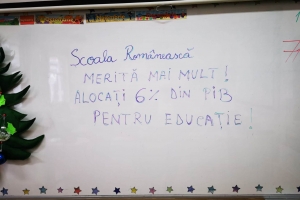 Școala Românească
MERITĂ MAI MULT!
ALOCAȚI 6% DIN PIB
PENTRU EDUCAȚIE!